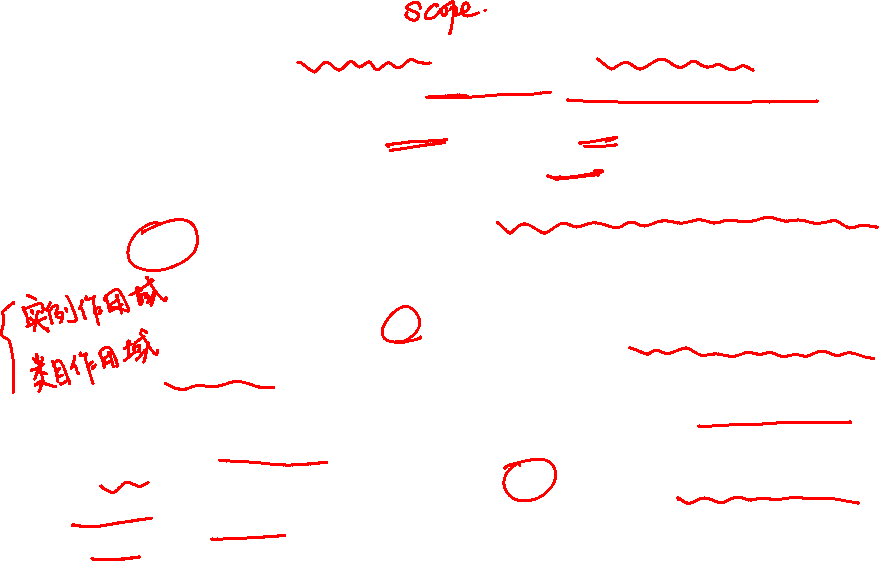 scope.
实例作用域
类作用域